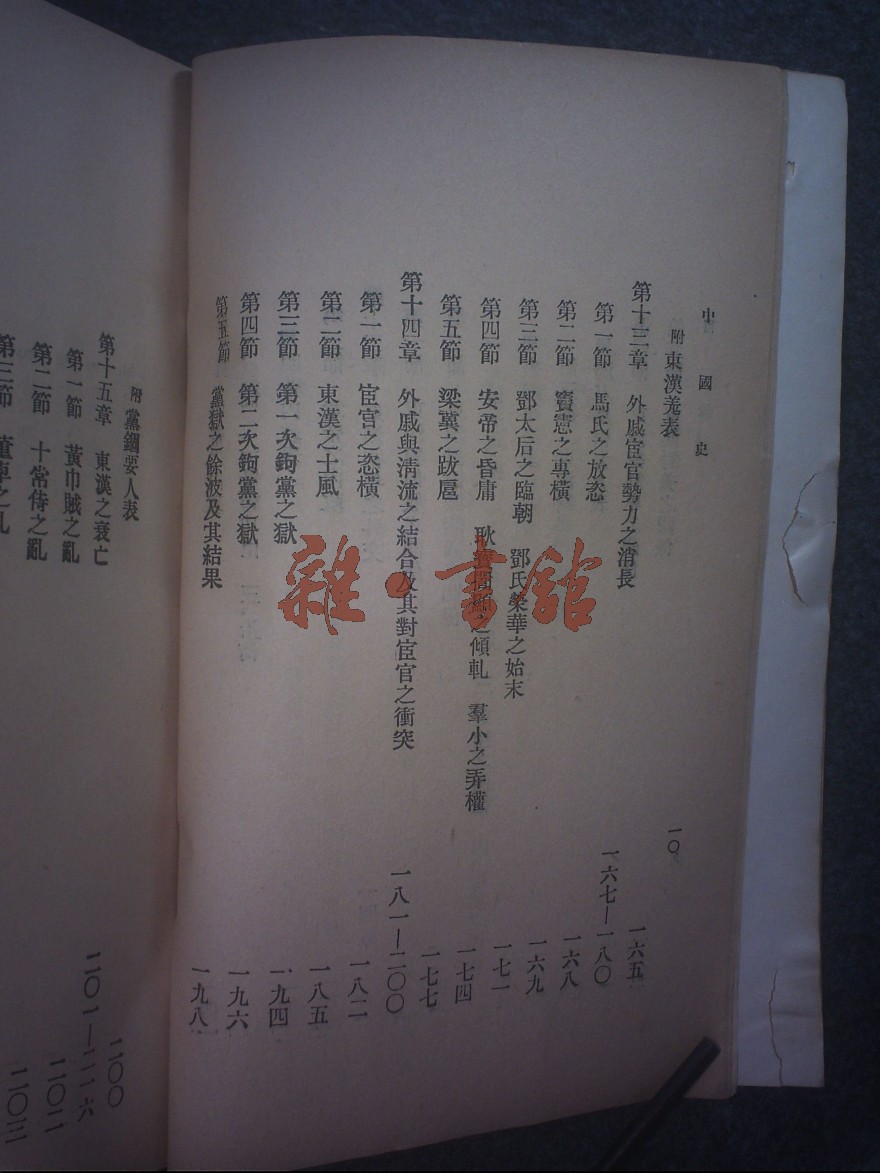 中國史
一〇
附 東漢羌表 一六五
第十三章 外戚宦官勢力之消長 一六七—一八〇
第一節 馬氏之放恣 一六八
第二節 竇憲之專橫 一六九
第三節 鄧太后之臨朝 鄧氏榮華之始末 一七一
第四節 安帝之昏庸 耿寶閻顯之傾軋 羣小之弄權 一七四
第五節 梁冀之跋扈 一七七
第十四章 外戚與清流之結合及其對宦官之衝突 一八一—二〇〇
第一節 宦官之恣橫 一八二
第二節 東漢之士風 一八五
第三節 第一次鉤黨之獄 一九四
第四節 第二次鉤黨之獄 一九六
第五節 黨獄之餘波及其結果 一九八
附 黨錮要人表 二〇〇
第十五章 東漢之衰亡 二〇一—二一六
第一節 黃巾賊之亂 二〇二
第二節 十常侍之亂 二〇三
第三節 董卓之亂
雜·書館